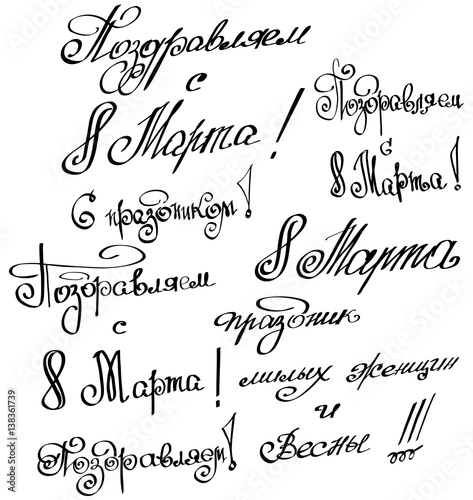 Поздравляем
с
8 Марта!
Поздравляем
с
8 Марта!
С праздником!
8 Марта
Поздравляем
с
8 Марта!
праздник
милых женщин
и
Весны !!!
Поздравляем!
Adobe Stock | #138361739